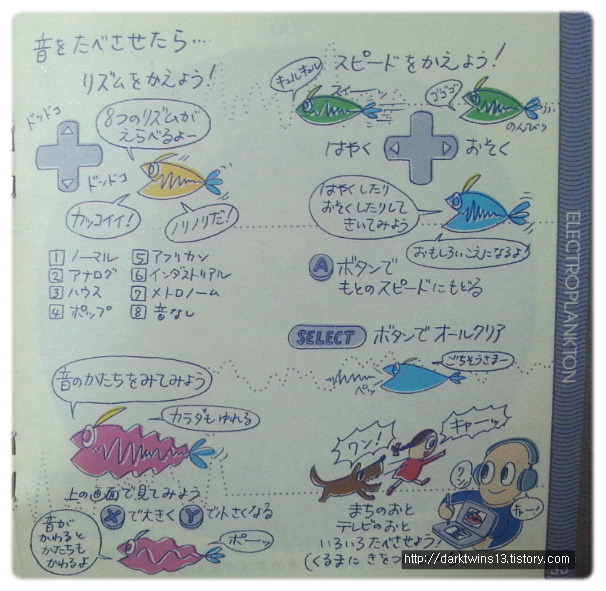 音をたべさせたら…
リズムをかえよう!
ドッドコ
8つのリズムが
えらべるよー
ドッドコ
カッコイイ!
ノリノリだ!
1 ノーマル
2 アナログ
3 ハウス
4 ポップ
5 アフリカン
6 インダストリアル
7 メトロノーム
8 音なし
スピードをかえよう!
キュルキュル
スイーーッ
ゴゴゴ
のんびり
はやく
おそく
はやくしたり
おそくしたりして
きいてみよう
おもしろいこえになるよ!
Aボタンで
もとのスピードにもどる
SELECT ボタンでオールクリア
ごちそうさまー
ペッ
音のかたちをみてみよう
カラダもゆれる
上の画面で見てみよう
Xで大きくYで小さくなる
音が
かわると
かたちも
かわるよ
ポーッ
ワン!
キャーッ
ワン
キャー
まちのおと
テレビのおと
いろいろたべさせよう!
(くるまに きをつ
ELECTROPLANKTON
http://darktwins13.tistory.com